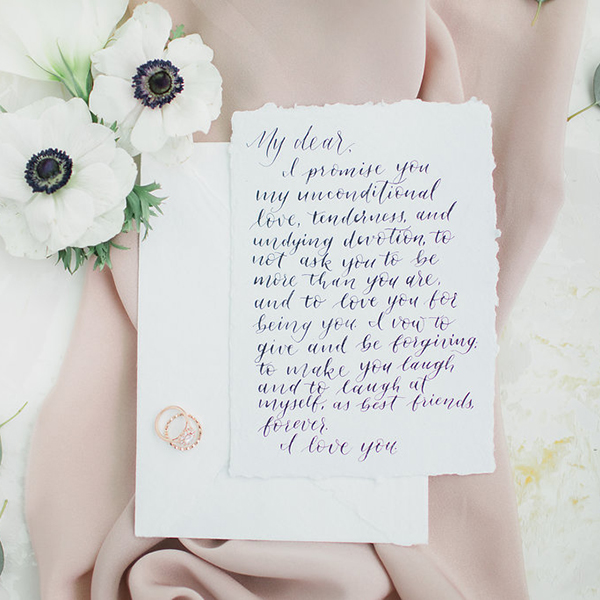 My dear,
I promise you
my unconditional
love, tenderness, and
undying devotion, to
not ask you to be
more than you are,
and to love you for
being you. I vow to
give and be forgiving;
to make you laugh
and to laugh at
myself, as best friends,
forever.
I love you.